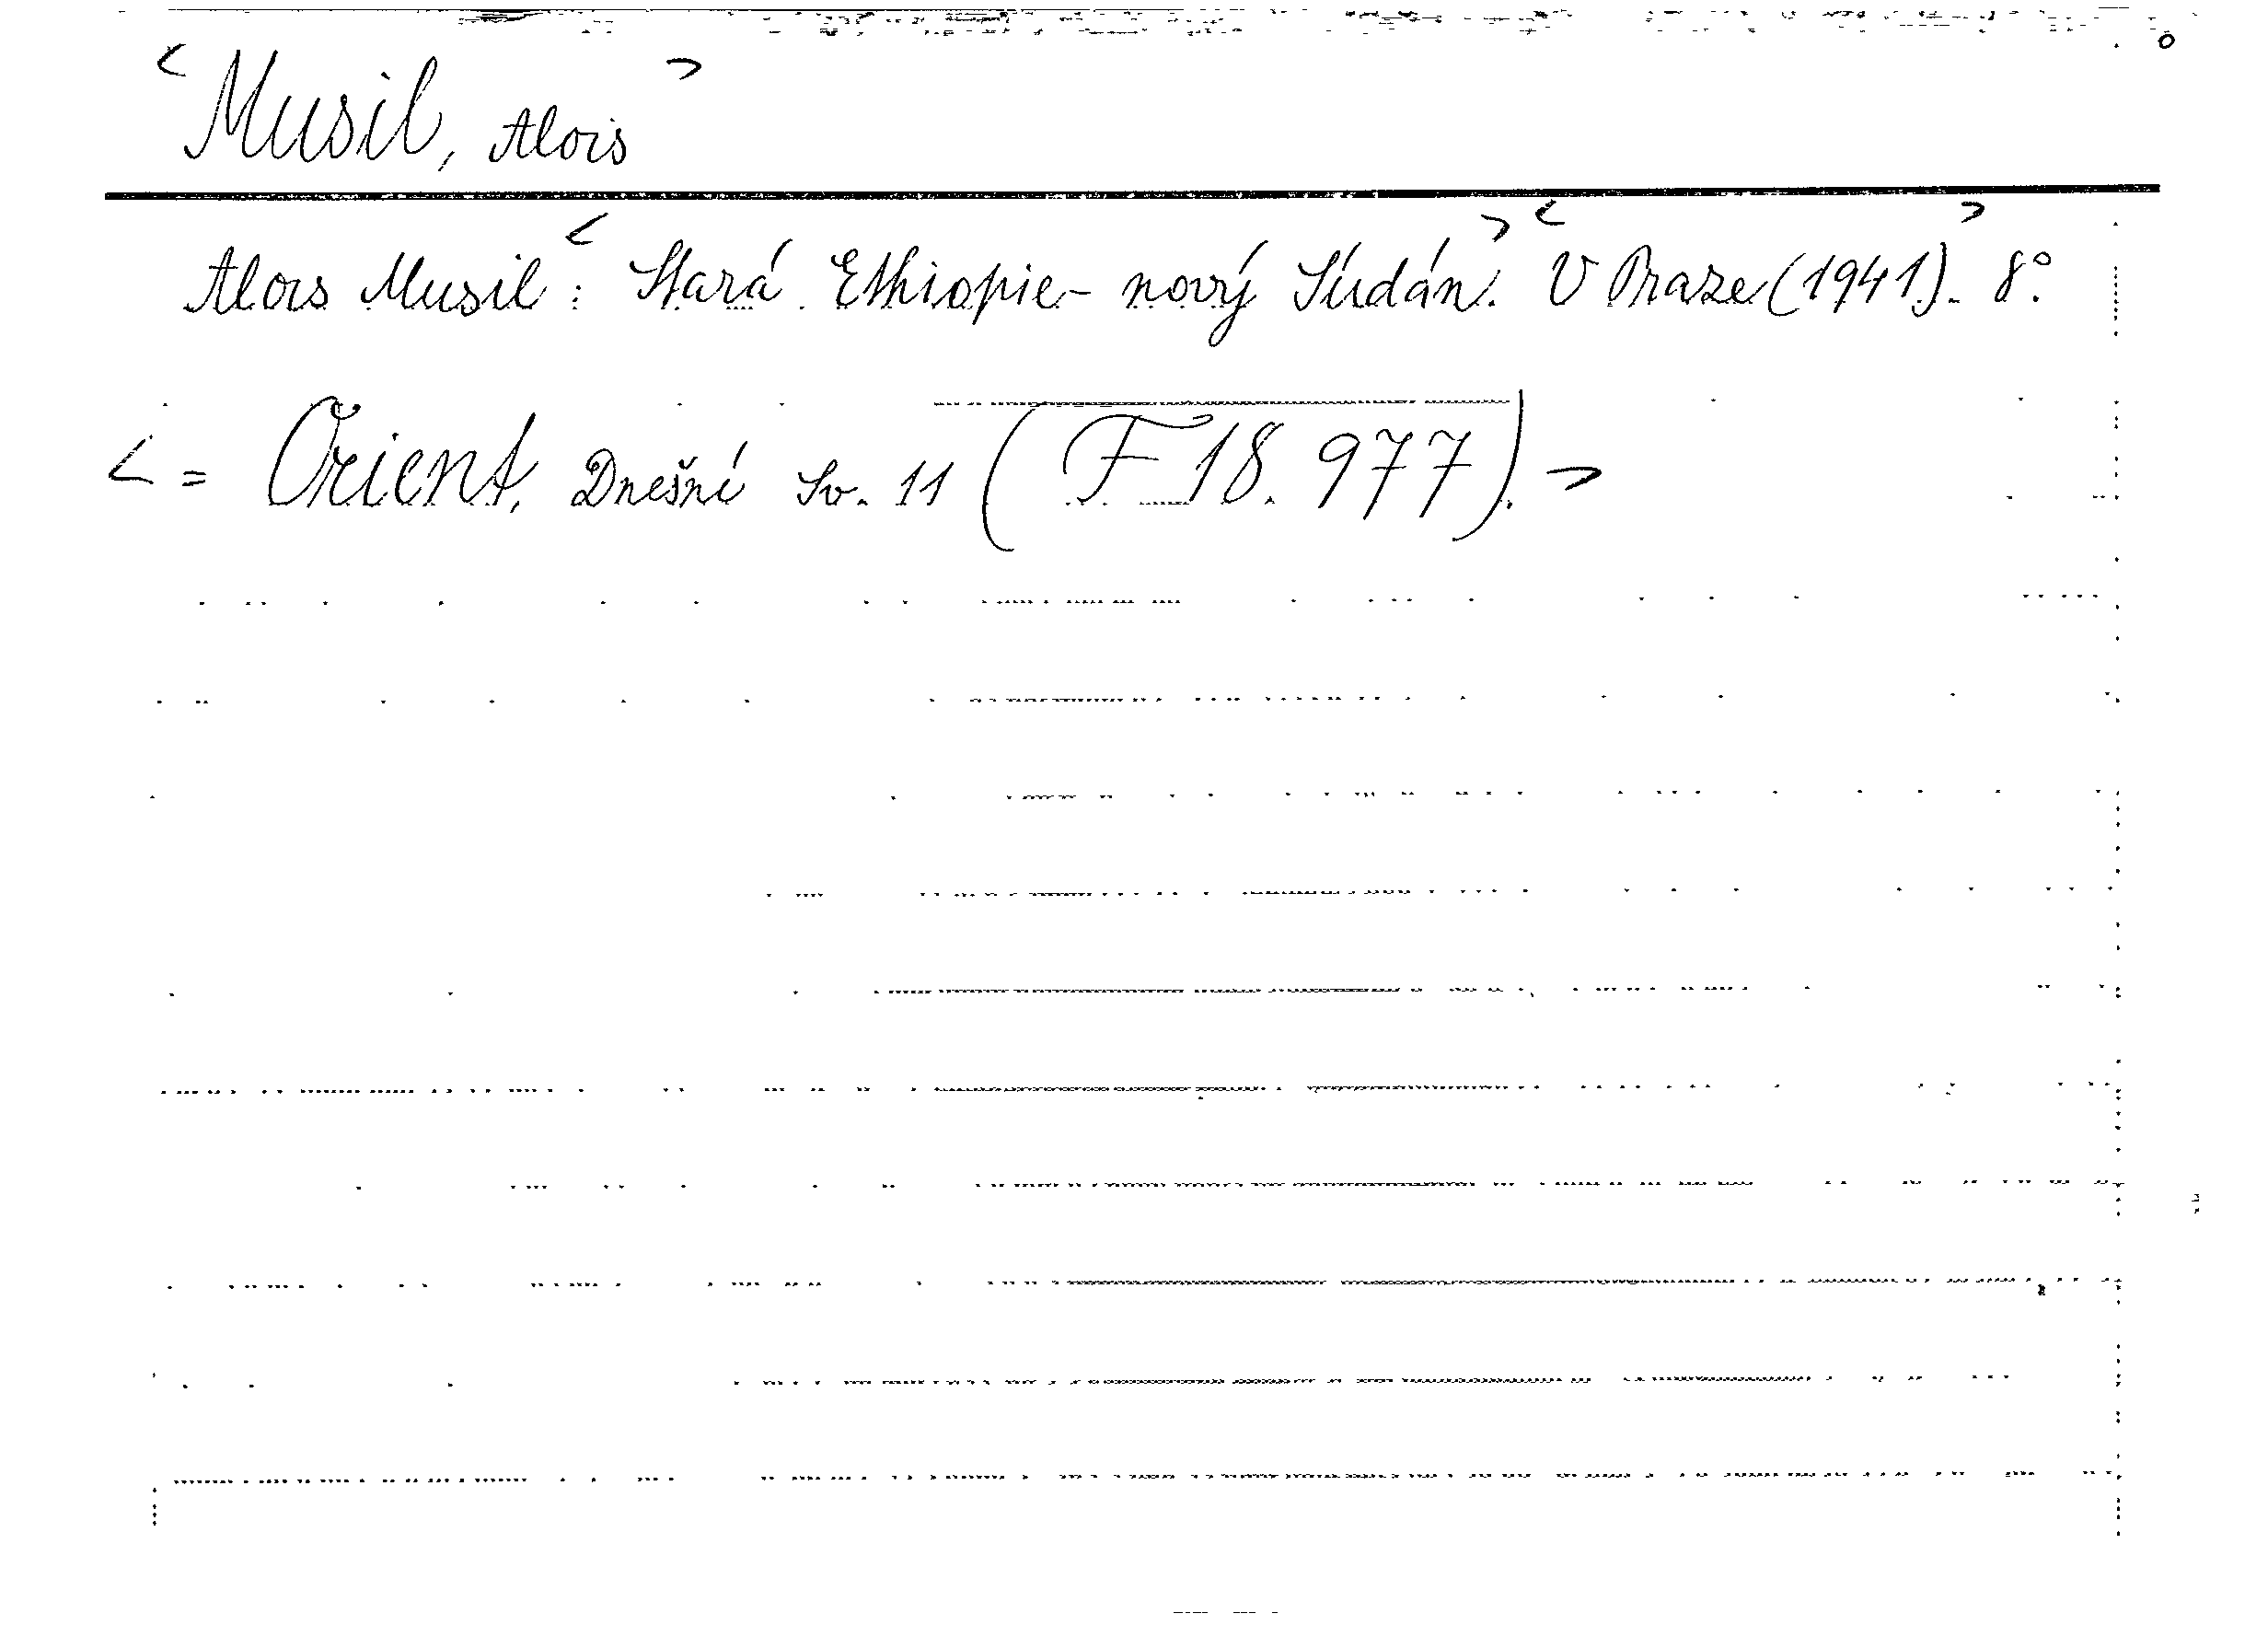 <Musil, Alois>
Alois Musil: <Stará Ethiopie- nový Súdán.> <V Praze (1941).> 8°.
<= Orient, Dnešní Sv. 11 (F 18.977).>